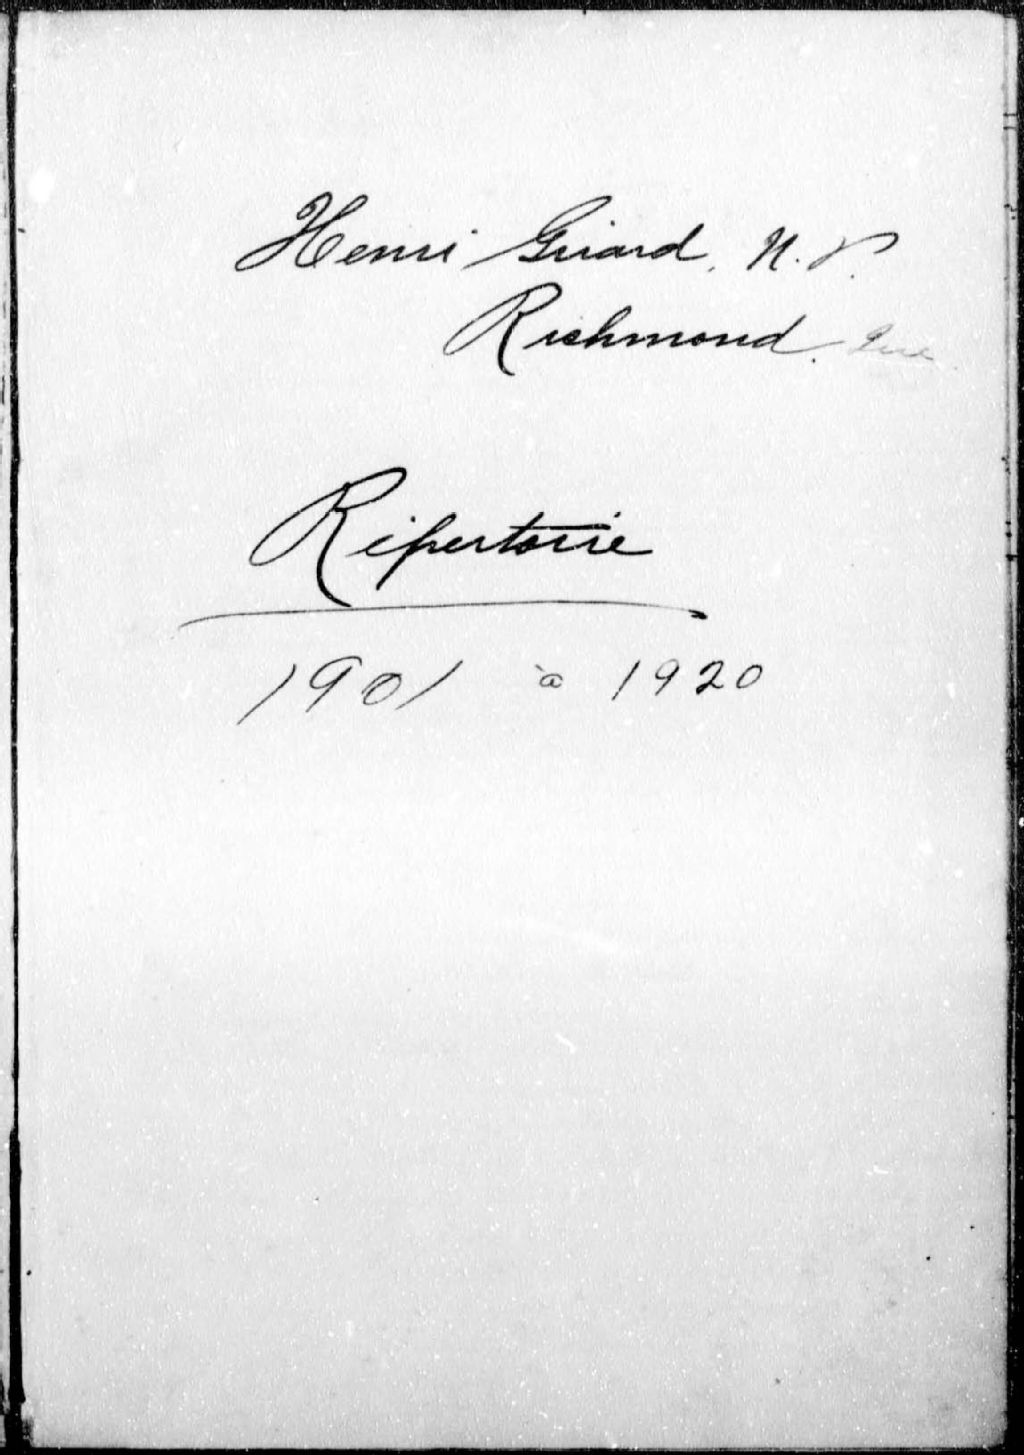 Henri Girard, N.P.
Richmond. Que.
Répertoire
1901 à 1920